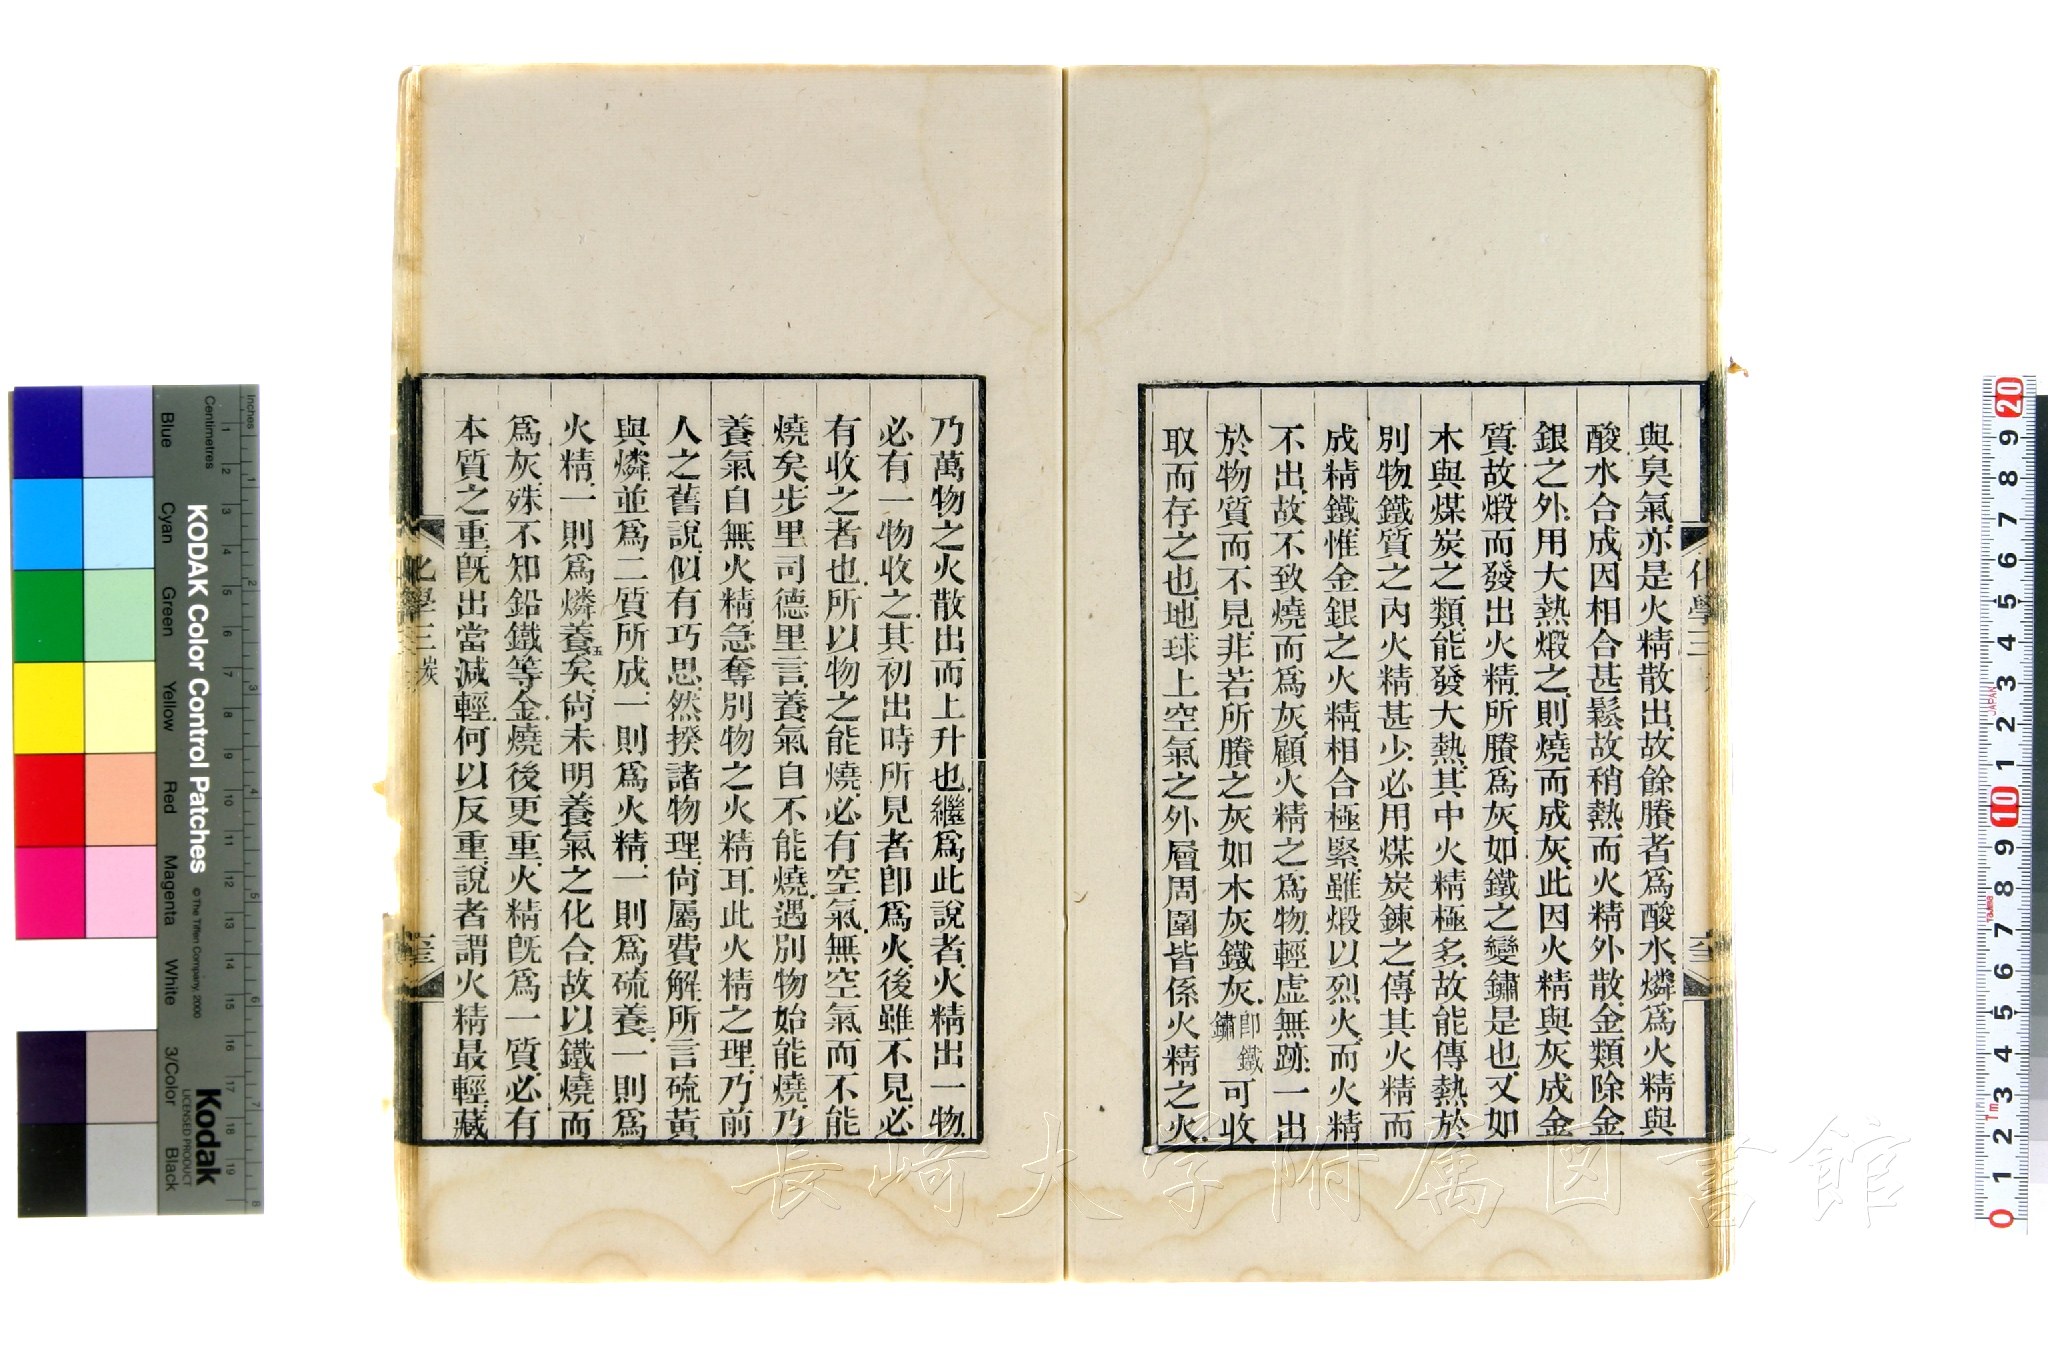 與臭氣亦是火精散出故餘賸者爲酸水燐爲火精與
酸水合成因相合甚鬆故稍熱而火精外散金類除金
銀之外用大熱煅之則燒而成灰此因火精與灰成金
質故煅而發出火精所賸爲灰如鐵之變鏽是也又如
木與煤炭之類能發大熱其中火精極多故能傳熱於
別物鐵質之內火精甚少必用煤炭鍊之傳其火精而
成精鐵惟金銀之火精相合極緊雖煅以烈火而火精
不出故不致燒而爲灰顧火精之爲物輕虛無跡一出
於物質而不見非若所賸之灰如木灰鐵灰卽鐵鏽可收
取而存之也地球上空氣之外層周圍皆係火精之火
乃萬物之火散出而上升也繼爲此說者火精出一物
必有一物收之其初出時所見者卽爲火後雖不見必
有收之者也所以物之能燒必有空氣無空氣而不能
燒矣步里司德里言養氣自不能燒遇別物始能燒乃
養氣自無火精急奪別物之火精耳此火精之理乃前
人之舊說似有巧思然揆諸物理尙屬費解所言硫黃
與燐並爲二質所成一則爲火精一則爲硫養三一則爲
火精一則爲燐養五矣尙未明養氣之化合故以鐵燒而
爲灰殊不知鉛鐵等金燒後更重火精旣爲一質必有
本質之重旣出當減輕何以反重說者謂火精最輕藏
化學三
化學三 炭
KODAK Color Control Patches
© The Tiffen Company, 2000
Kodak
LICENSED PRODUCT
Inches
Centimetres
Blue
Cyan
Green
Yellow
Red
Magenta
White
3/Color
Black
1 2 3 4 5 6 7 8
1 2 3 4 5 6 7 8 9 10 11 12 13 14 15 16 17 18 19
20 9 8 7 6 5 4 3 2 1 10 9 8 7 6 5 4 3 2 1 0
JAPAN
長崎大学附属図書館